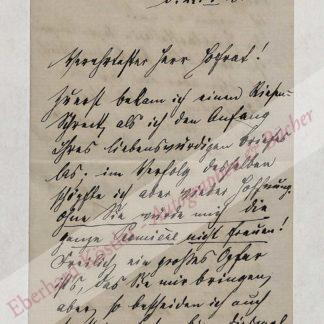 Verehrtester Herr Hofrat!
Zuerst bekam ich einen Riesen-
Schreck, als ich den Anfang
ihres liebenswürdigen Briefes
las. im Verfolg desselben
schöpfte ich aber wieder Hoffnung.
Ohne Sie würde mich die
ganze Première nicht freuen!
Freilich, ein großes Opfer
ist's, das Sie mir bringen,
aber, so bescheiden ich auch